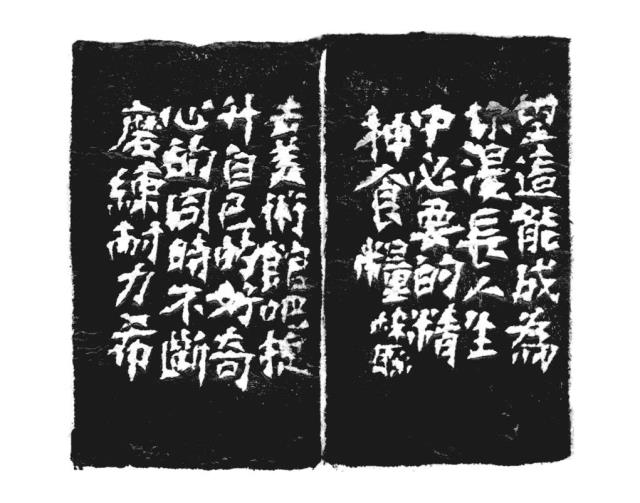 去美術館吧提
升自己的好奇
心的同時不斷
磨練耐力希
望這能成為
你漫長人生
中必要的精
神食糧